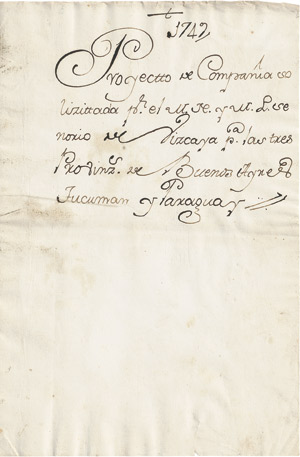 +
1742
Proyectto de Compañia so
lizitada pr. el M. N. y M. L. Se
norio de Vizcaya pa. las tres
Provinzs. de Buenos Ayres
Tucuman y Paraguay